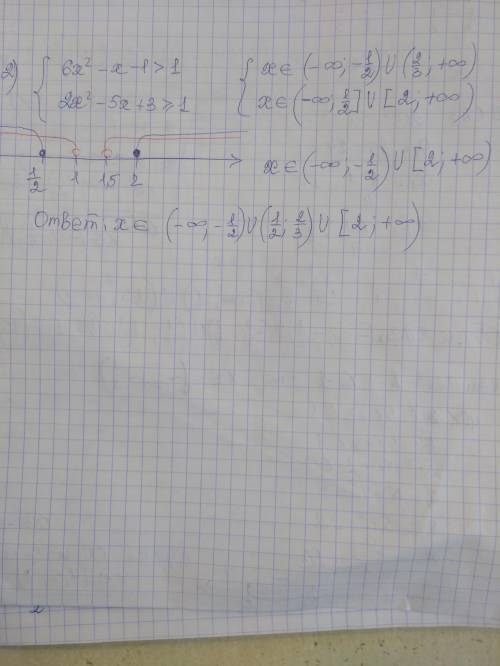 2) { 6x² - x - 1 > 1
2x² - 5x + 3 ≥ 1
{ x ∈ (-∞; -1/2) ∪ (2/3; +∞)
x ∈ (-∞; 1/2] ∪ [2; +∞)
1/2 1 1,5 2
x ∈ (-∞; -1/2) ∪ [2; +∞)
Ответ: x ∈ (-∞; -1/2) ∪ (1/2; 2/3) ∪ [2; +∞)